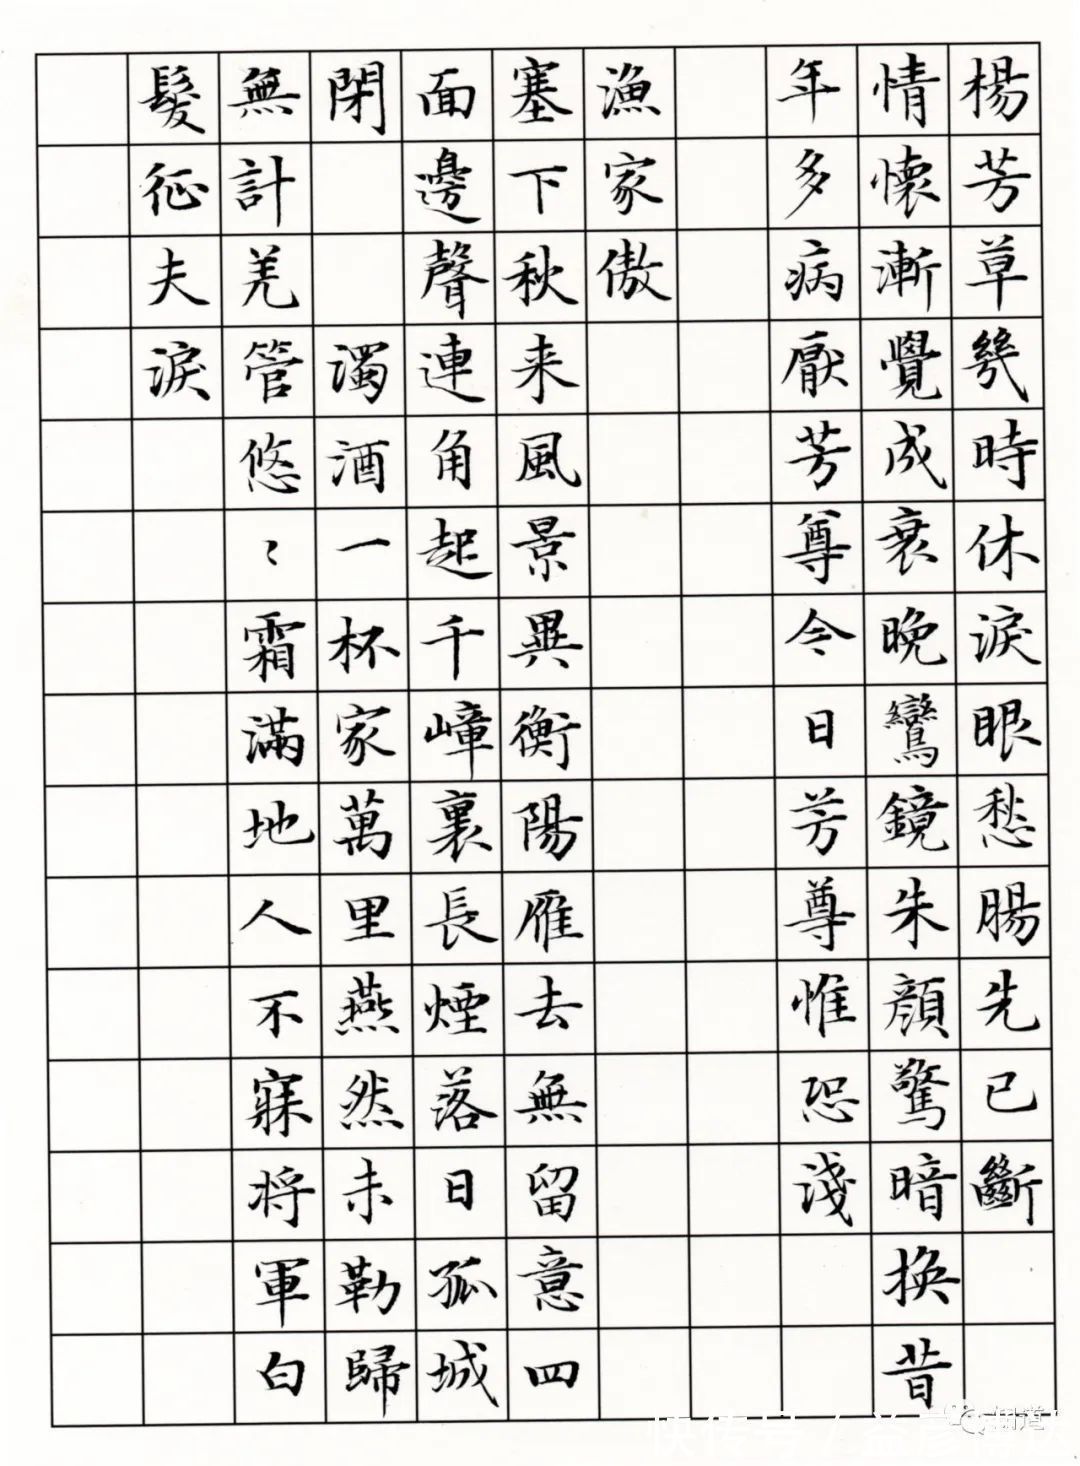 楊芳草幾時休淚眼愁腸先已斷
情懷漸覺成衰晚鸞鏡朱顏驚暗換昔
年多病厭芳尊今日芳尊惟恐淺
漁家傲
塞下秋来風景異衡陽雁去無留意四
面邊聲連角起千嶂裏長煙落日孤城
閉 濁酒一杯家萬里燕然未勒歸
無計羌管悠〻霜滿地人不寐將軍白
髮征夫淚